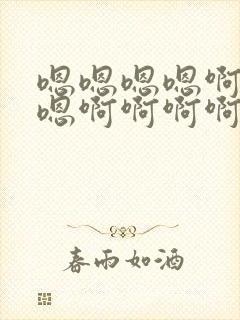 嗯嗯嗯嗯啊
嗯啊啊啊啊
春雨如酒